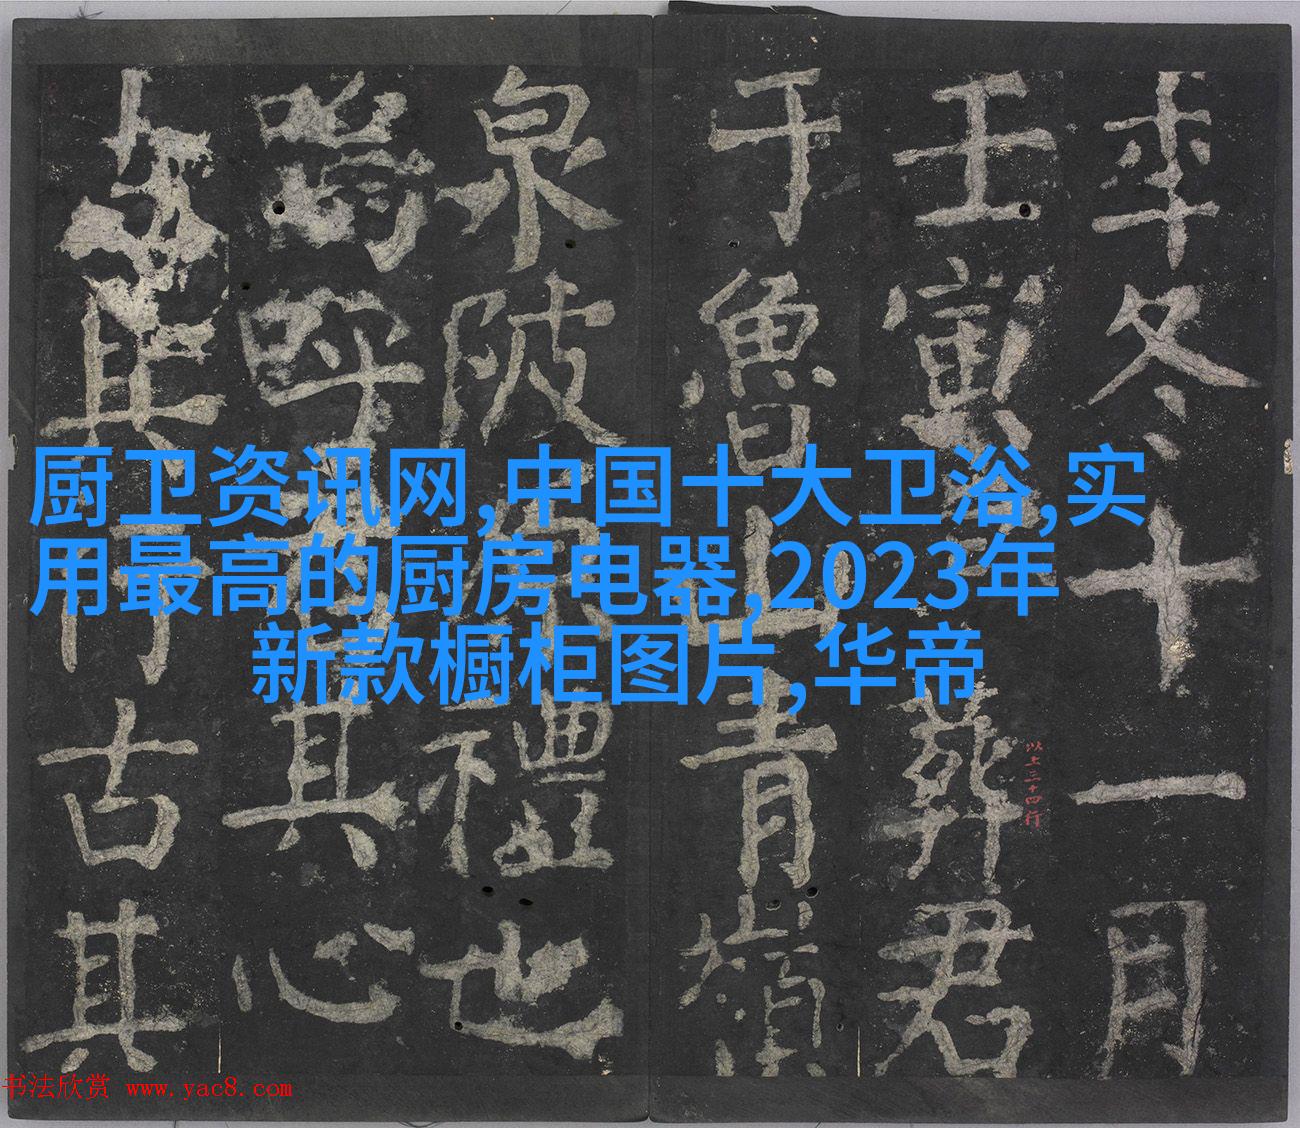 年冬十一月
壬寅葬君
以上三十四行
于魯山青嶺
泉陂原禮也
嗚呼其心
其行古其
厨卫资讯网,中国十大卫浴,实
用最高的厨房电器,2023年
新款橱柜图片,华帝
书法欣赏 www.yac8.com